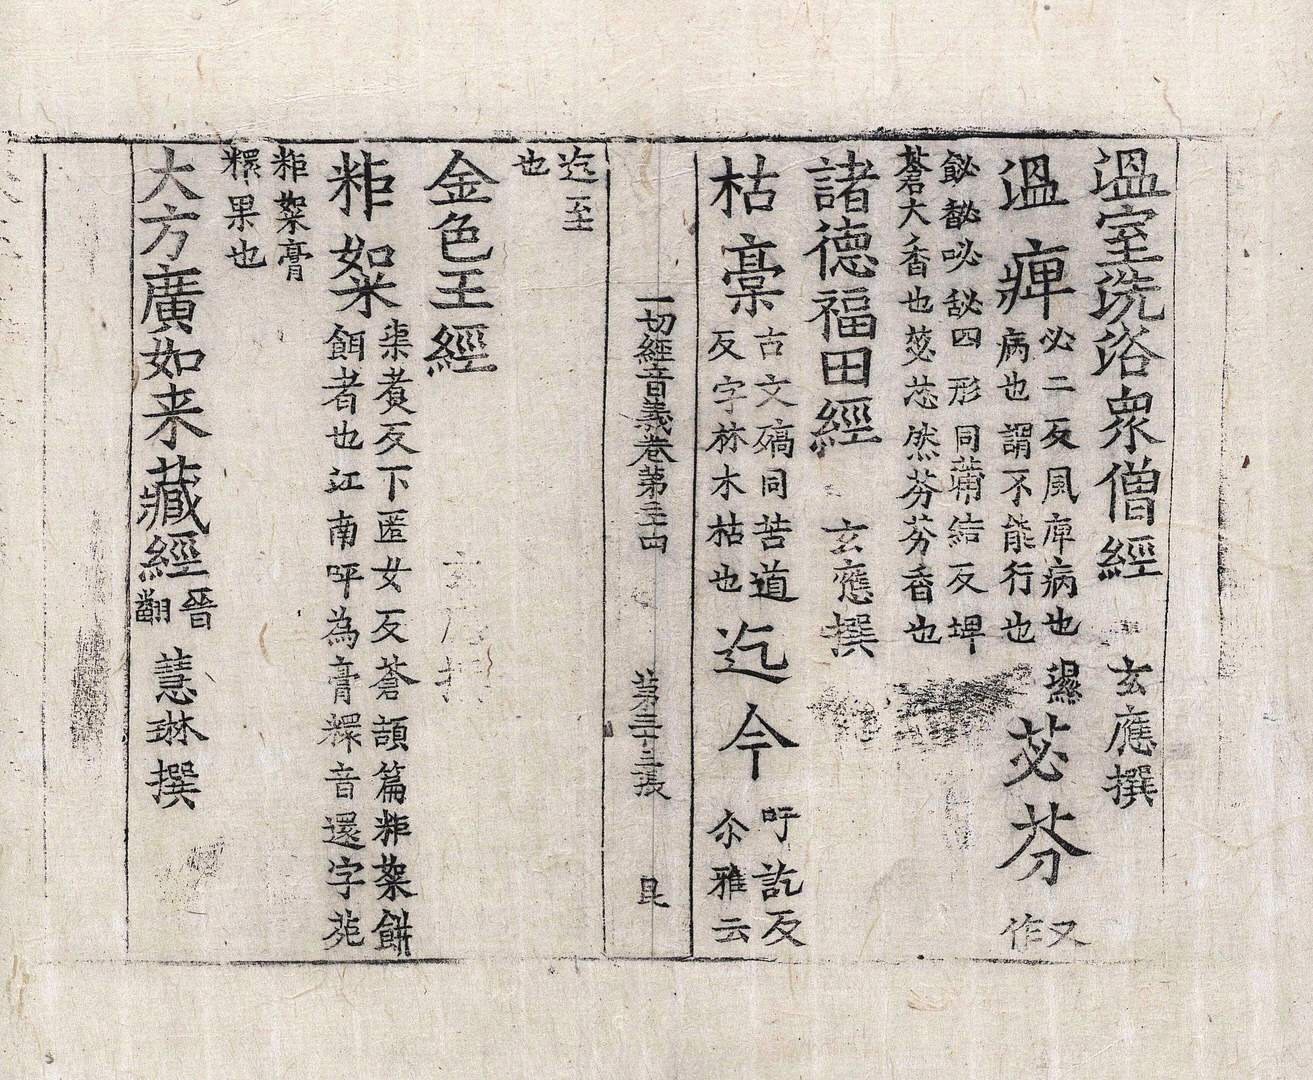 溫室洗浴衆僧經 玄應撰
溫痺
必二反風痺病也濕
病也謂不能行也
苾芬
又
作
飶馥咇馝四形同蒲結反埤
蒼大香也苾苾然芬芬香也
諸德福田經 玄應撰
枯槀
古文殦同苦道
反字林木枯也
迄今
吁訖反
尒雅云
一切經音義卷第三十四 第三十三張 昆
迄至
也
金色王經
粔籹
渠煑反下匿女反蒼頡篇粔籹餅
餌者也江南呼為膏糫音還字苑
粔籹膏
糫果也
大方廣如来藏經
晉
翻
慧琳撰